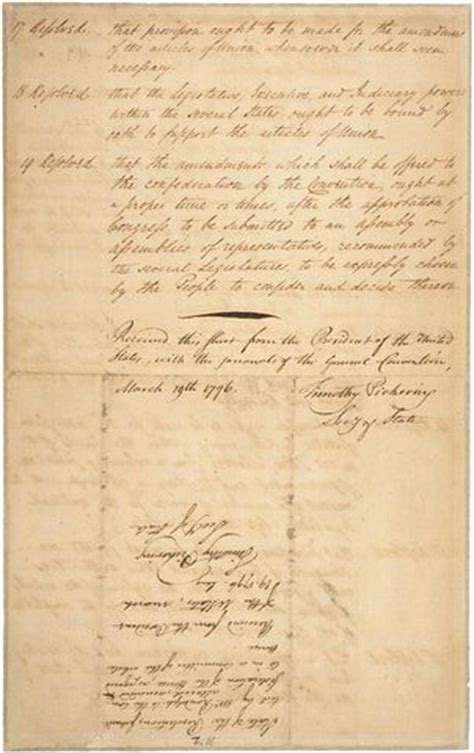 17 Resolved. that provision ought to be made for the amendment
of the articles of Union, whensoever it shall seem
necessary.
18 Resolved. that the Legislative, Executive, and Judiciary powers
within the several States ought to be bound by
oath to support the articles of Union
19 Resolved. that the amendments which shall be offered to
the confederation by the Convention, ought at
a proper time or times, after the approbation of
Congress to be submitted to an assembly or
assemblies of representatives, recommended by
the several Legislatures, to be expressly chosen
by the People to consider and decide thereon
Received this sheet from the President of the United
States, with the journals of the General Convention,
March 19th 1796.
Timothy Pickering
Secy of State
State of the Resolutions submit
ted by Mr Randolph to the con
altered, amended &
federation of the
to in a Committee of the whole
House
Received from the President
of the U States, March
19. 1796. by
Timothy Pickering
Secy of State